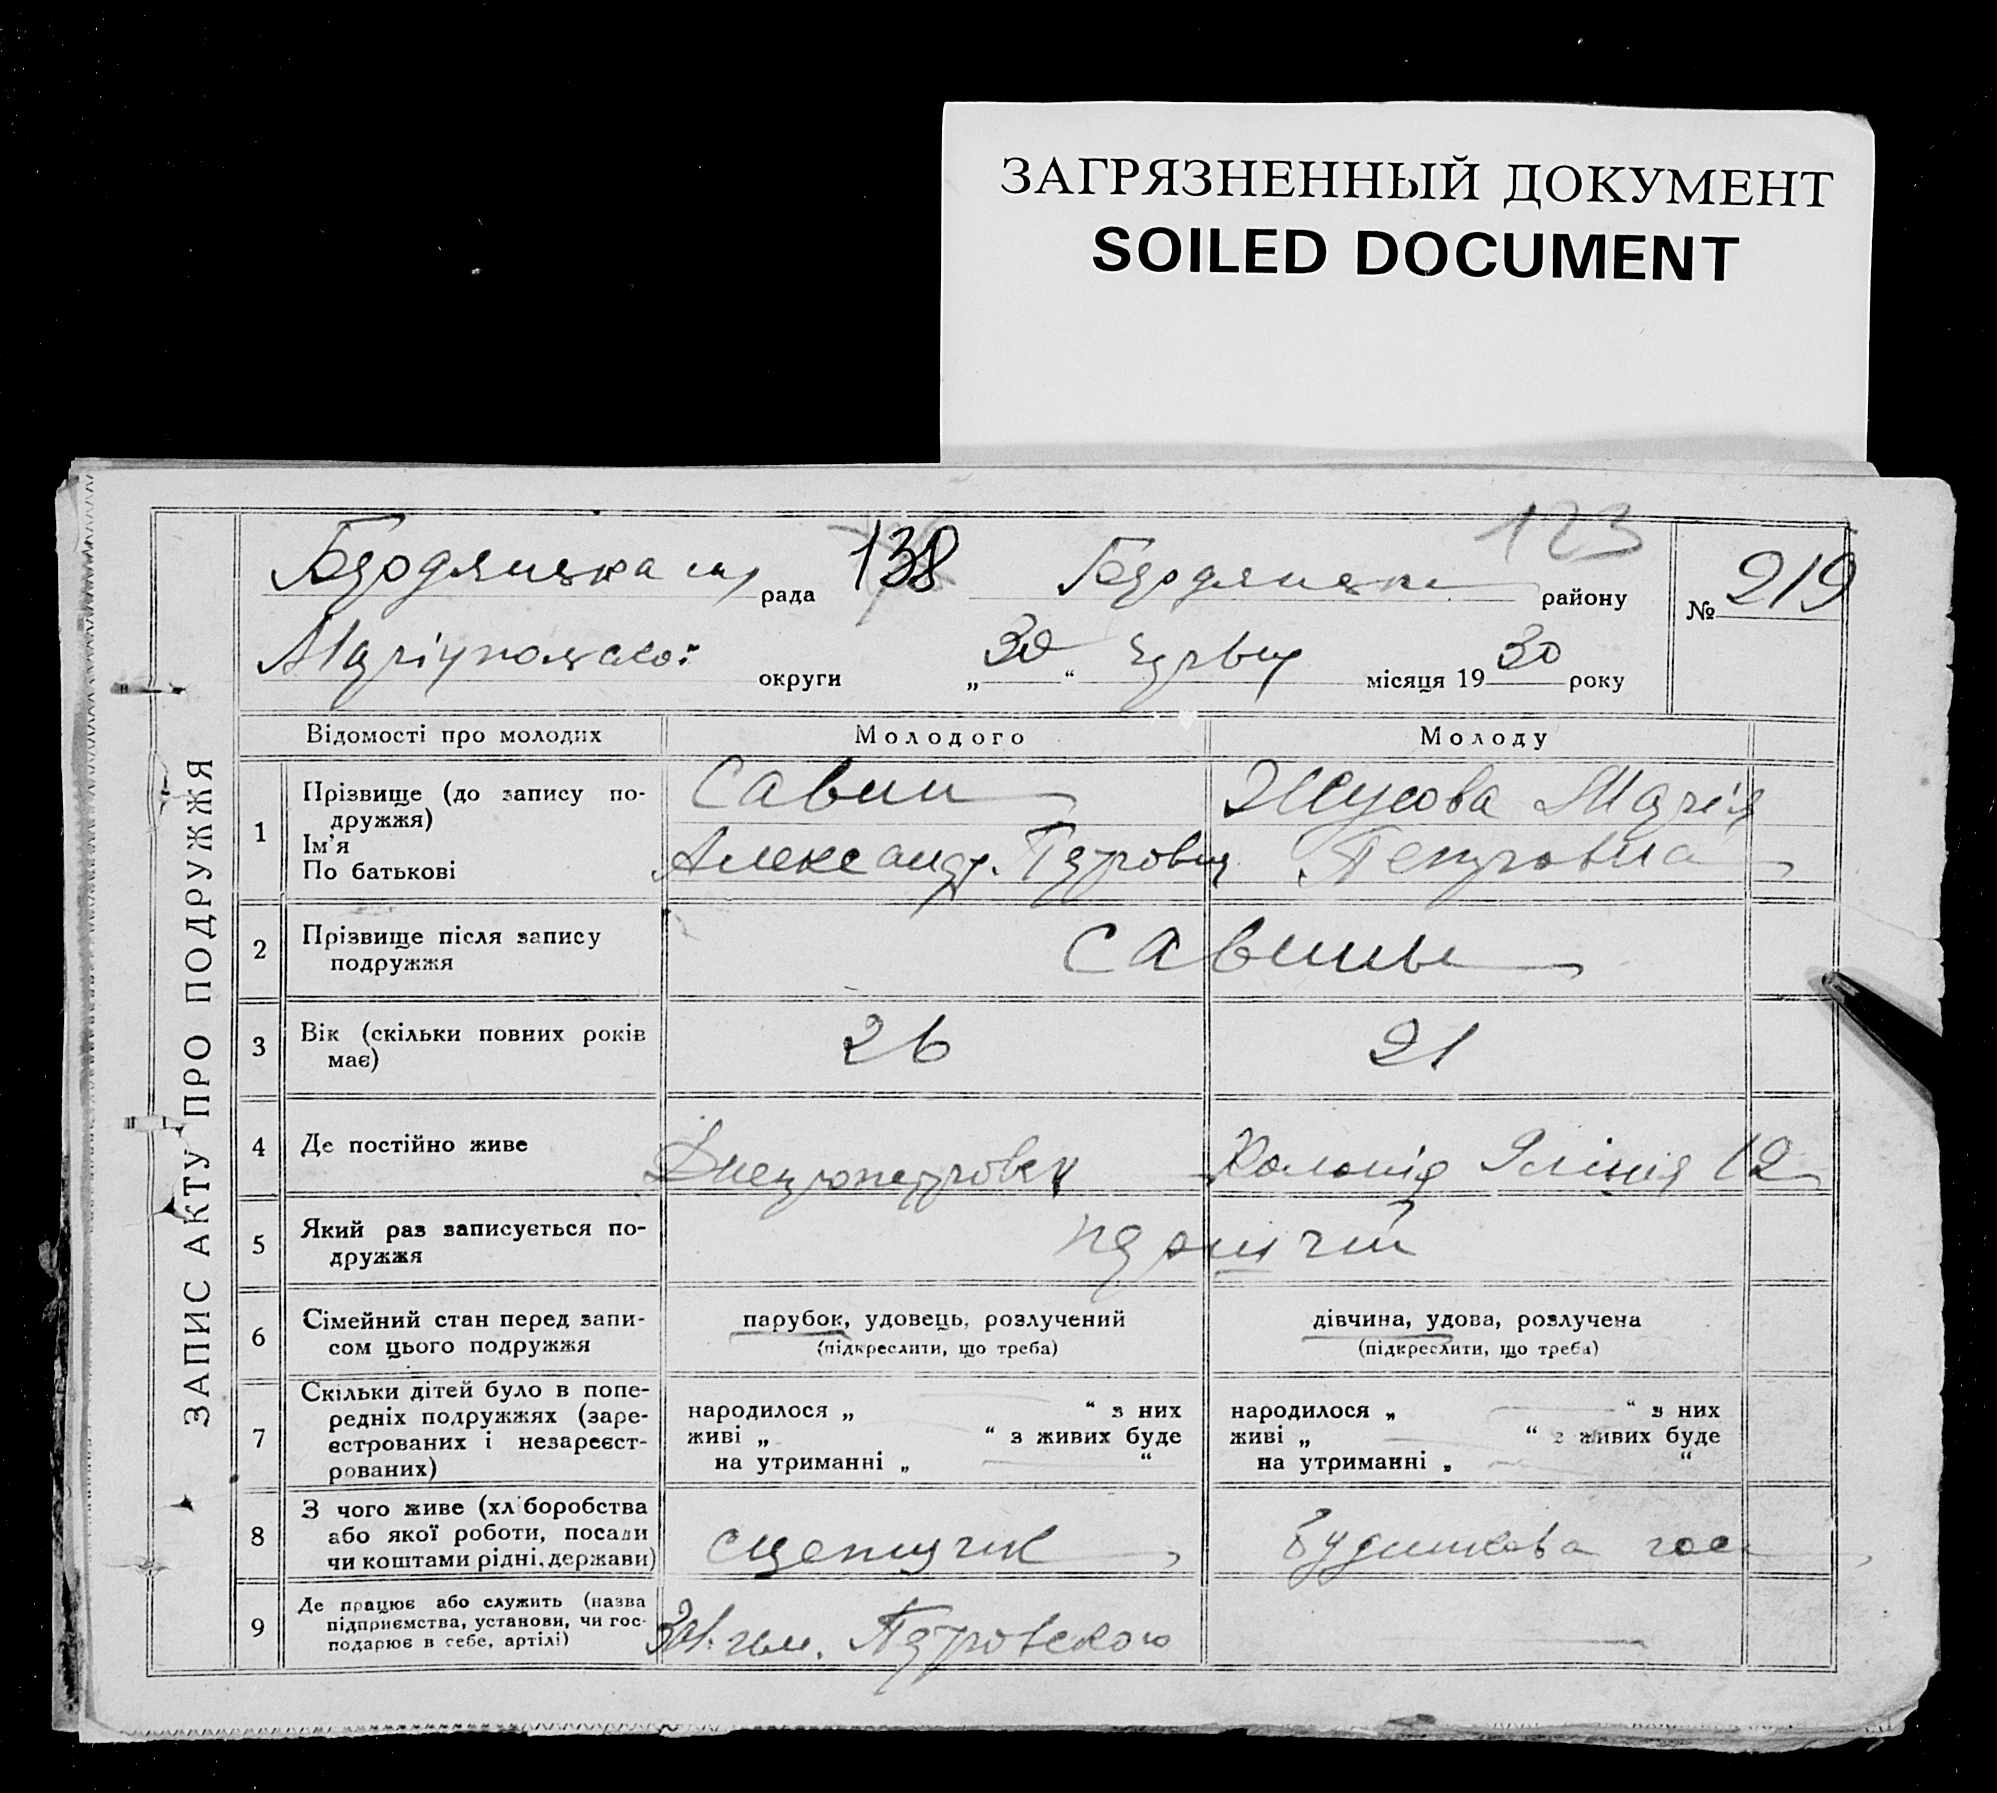 ЗАГРЯЗНЕННЫЙ ДОКУМЕНТ
SOILED DOCUMENT
123
рада 138 району № 219
округи „ 30 “ місяця 19 30 року
ЗАПИС АКТУ ПРО ПОДРУЖЖЯ
Відомості про молодих Молодого Молоду
1 Прізвище (до запису по-
дружжя)
Ім'я
По батькові
Савин
Александр. Петрович
Марія
Петровна
2 Прізвище після запису
подружжя
Савины
3 Вік (скільки повних років
має)
26 21
4 Де постійно живе
Колонія 12
5 Який раз записується по-
дружжя
6 Сімейний стан перед запи-
сом цього подружжя
парубок, удовець, розлучений
(підкреслити, що треба)
дівчина, удова, розлучена
(підкреслити, що треба)
7 Скільки дітей було в попе-
редніх подружжях (заре-
єстрованих і незареєст-
рованих)
народилося „ “ з них
живі „ “ з живих буде
на утриманні „ “
народилося „ “ з них
живі „ “ з живих буде
на утриманні „ “
8 З чого живе (хліборобства
або якої роботи, посади
чи коштами рідні, держави)
сцепщик
9 Де працює або служить (назва
підприємства, установи, чи гос-
подарює в себе, артілі)
им. Петровского